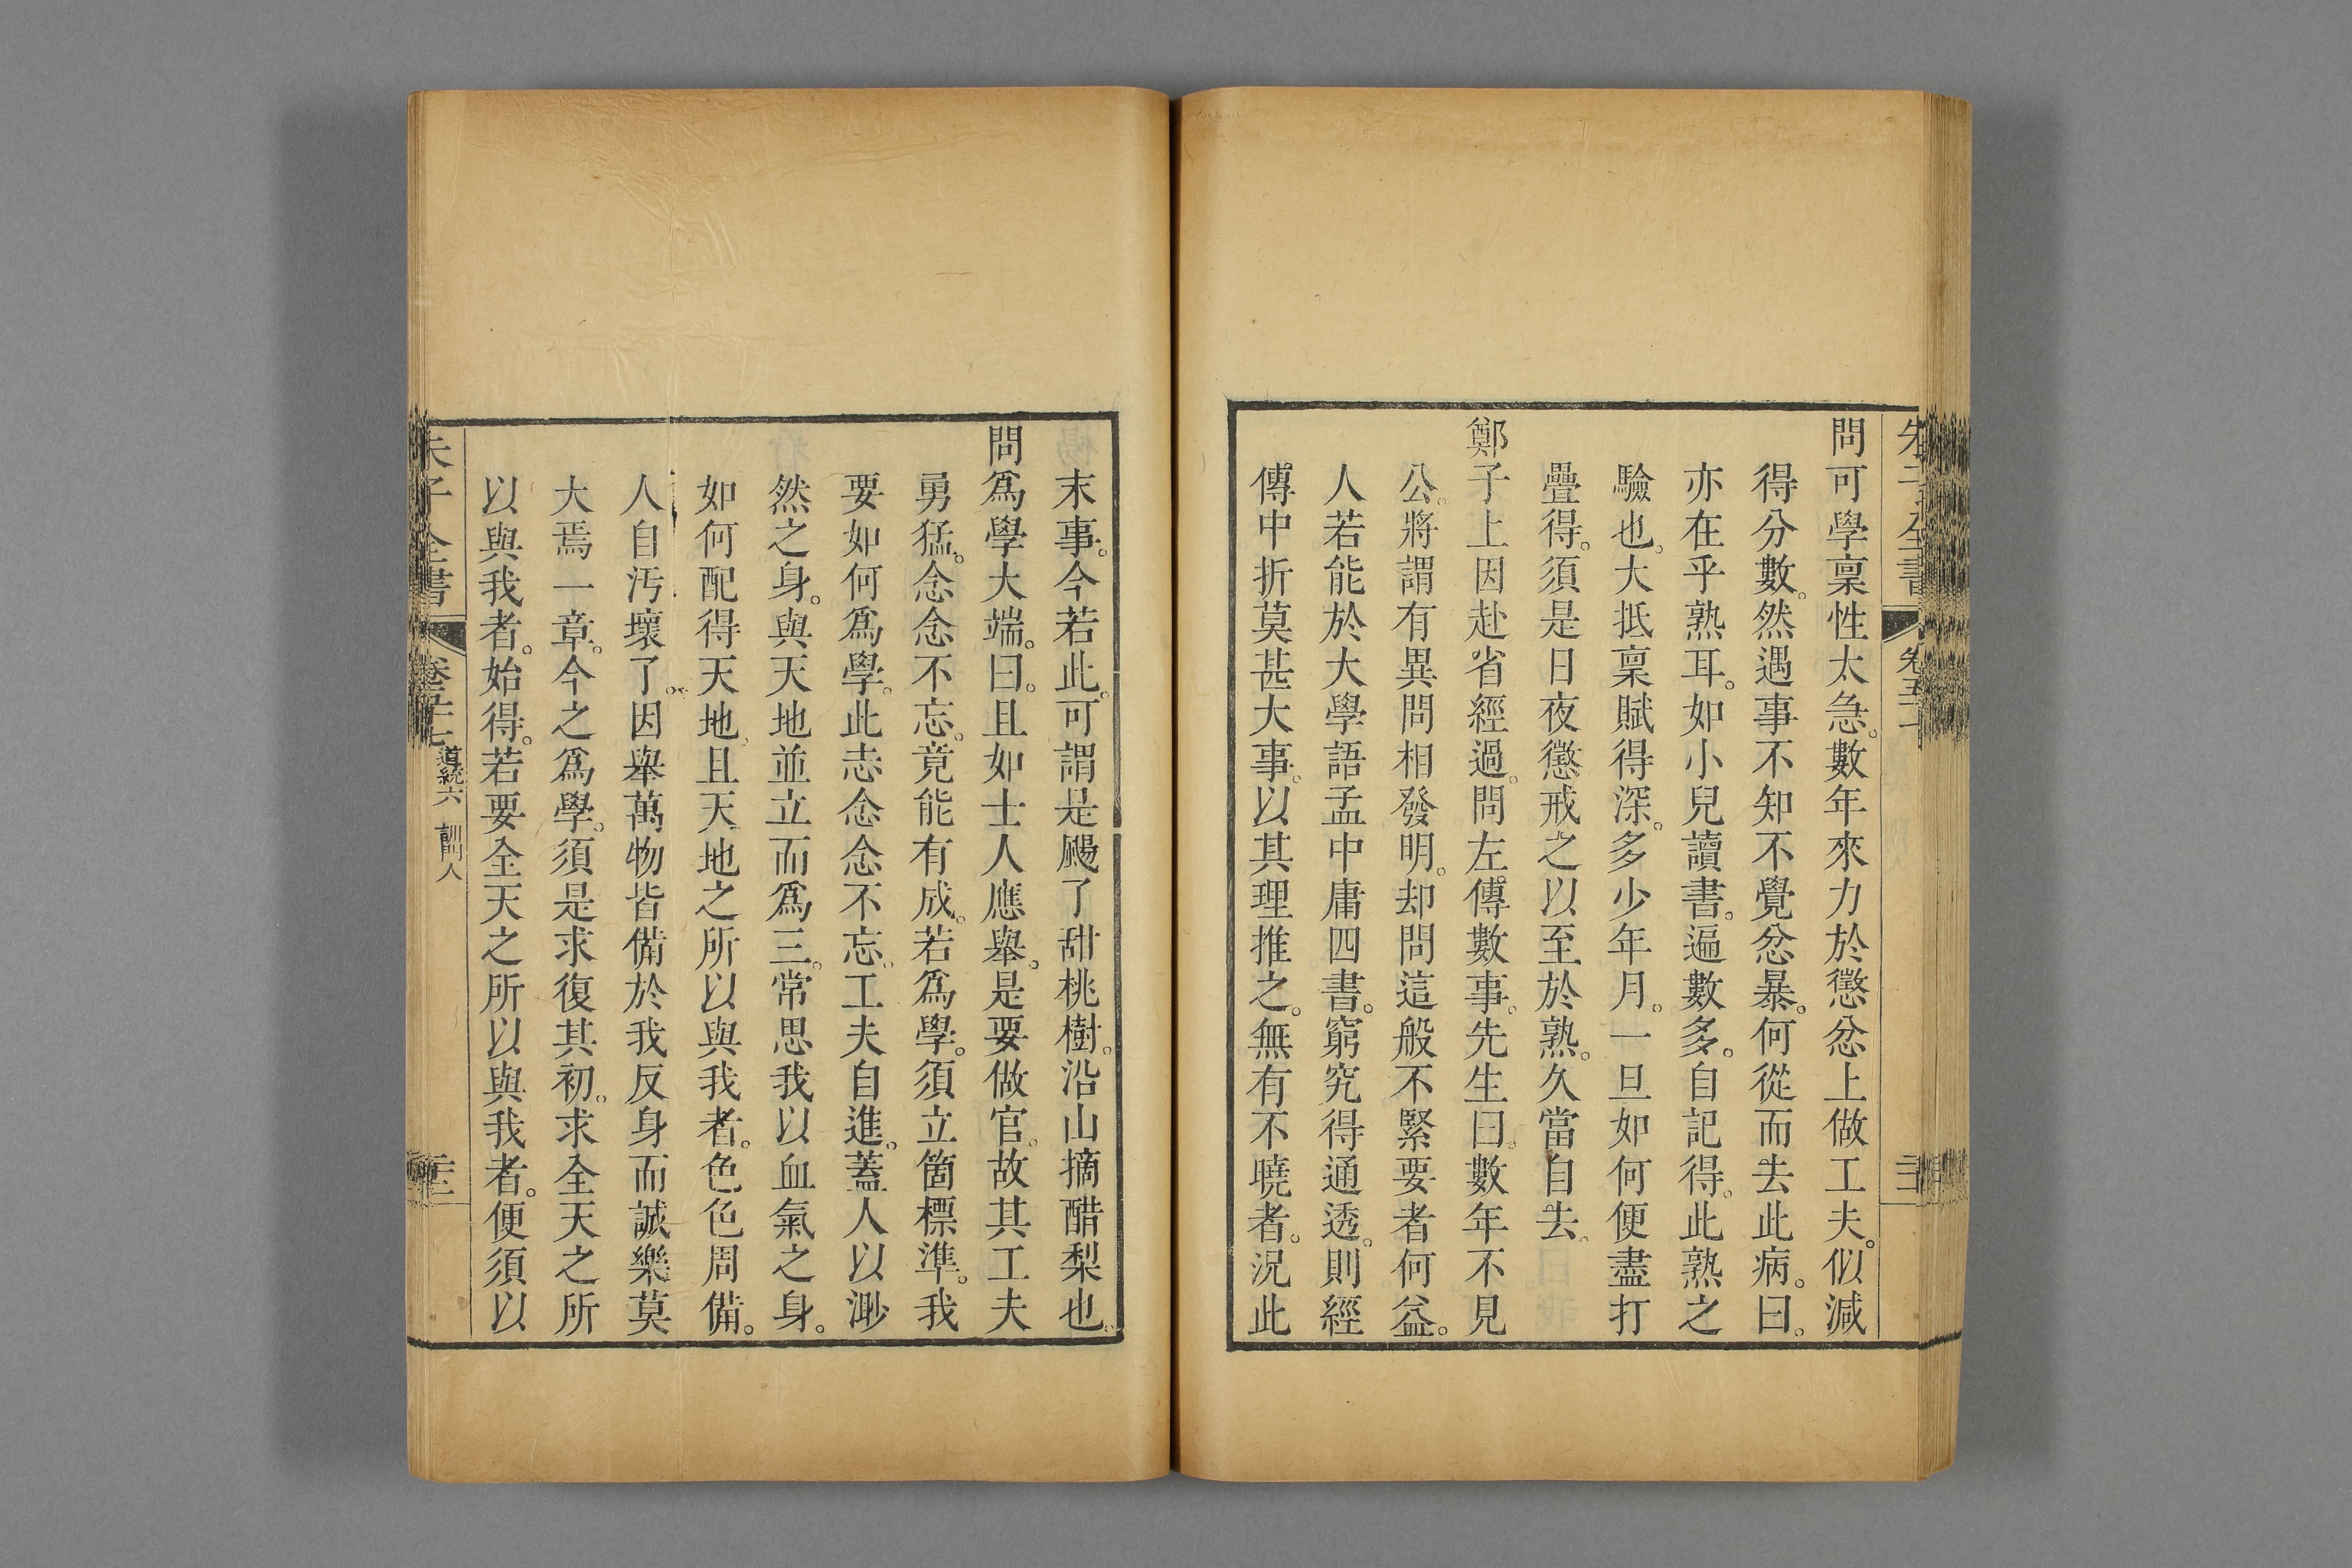 問可學稟性太急。數年來力於懲忿上做工夫。似減
得分數。然遇事不知不覺忿暴。何從而去此病。曰。
亦在乎熟耳。如小兒讀書。遍數多。自記得。此熟之
驗也。大抵稟賦得深。多少年月。一旦如何便盡打
疊得。須是日夜懲戒之以至於熟。久當自去。
鄭子上因赴省經過。問左傳數事。先生曰。數年不見
公。將謂有異問相發明。却問這般不緊要者何益。
人若能於大學語孟中庸四書。窮究得通透。則經
傳中折莫甚大事。以其理推之。無有不曉者。況此
末事。今若此。可謂是颺了甜桃樹。沿山摘醋梨也。
問爲學大端。曰。且如士人應舉。是要做官。故其工夫
勇猛。念念不忘。竟能有成。若爲學。須立箇標準。我
要如何爲學。此志念念不忘。工夫自進。蓋人以渺
然之身。與天地並立而爲三。常思我以血氣之身。
如何配得天地。且天地之所以與我者。色色周備。
人自汚壞了。因舉萬物皆備於我反身而誠樂莫
大焉一章。今之爲學。須是求復其初。求全天之所
以與我者。始得。若要全天之所以與我者。便須以
朱子全書 卷五十七 道統六 訓門人